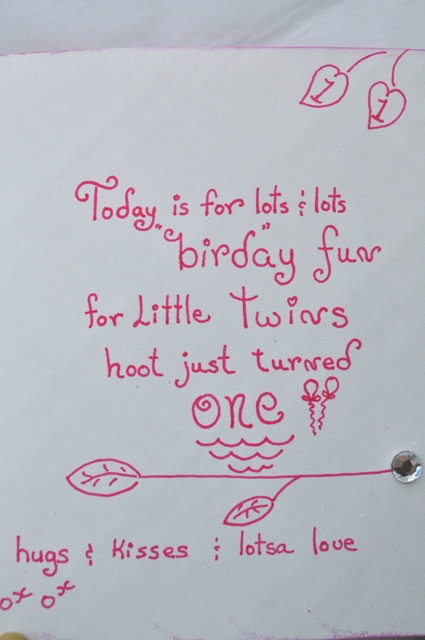 1 1
Today is for lots & lots
"birday" fun
for Little Twins
hoot just turned
one
hugs & kisses & lotsa love
ox ox